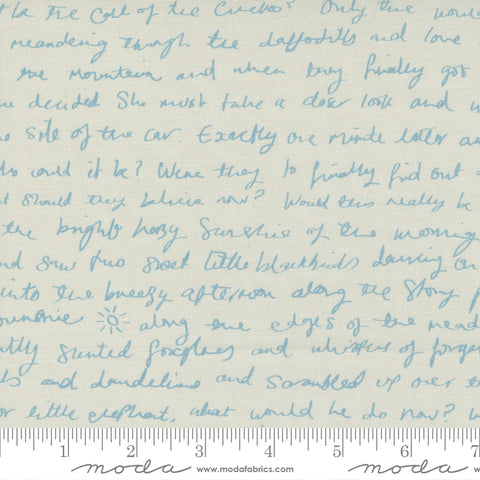 be the Call of the Cuckoo? Only time would
meandering through the daffodills and love
the mountain and when they finally got
decided She must take a closer look and
the side of the car. Exactly one minute later
could it be? Were they to finally find out
should they believe now? Would this really be
the bright hazy Sunshine of the morning
and saw two sweet little blackbirds dancing on
into the breezy afternoon along the Stony
along the edges of the mead
scented foxgloves and whispers of forget
and dandelions and scrambled up over the
little elephant, what would he do now?
1 2 3 4 5 6 7
moda www.modafabrics.com moda